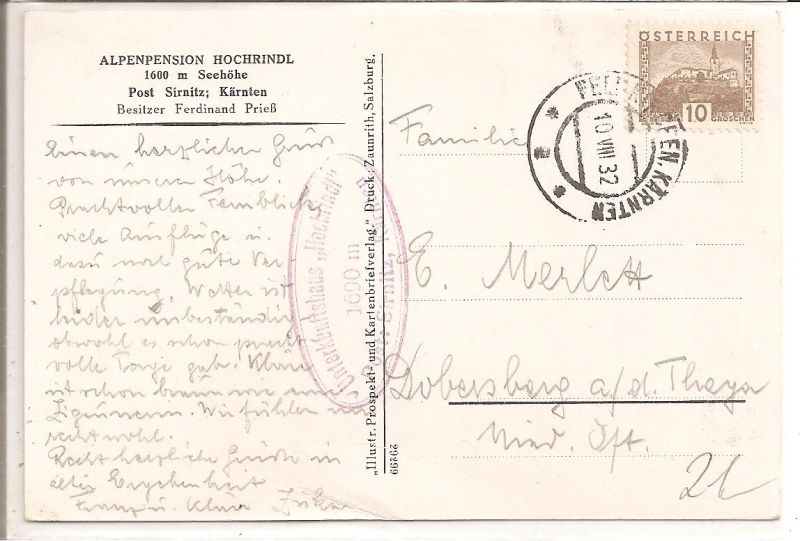 ALPENPENSION HOCHRINDL
1600 m Seehöhe
Post Sirnitz; Kärnten
Besitzer Ferdinand Prieß
Einen herzlichen Gruß
von unserer Höhe.
Prachtvoller Fernblick,
viele Ausflüge u.
dazu noch gute Ver
pflegung, Wetter ist
leider unbeständig
obwohl es schon pracht
volle Tage gab. Klära
ist schon braun wie eine
Zigeunerin. Wir fühlen uns
recht wohl.
Recht herzliche Grüße in
alter Ergebenheit
Franz u. Klära
Unterkunftshaus „Hochrindl"
1600 m
Post: Sirnitz,
„Illustr. Prospekt- und Kartenbriefverlag." Druck: Zaunrith, Salzburg.
29299
ÖSTERREICH
10
GROSCHEN
KÄRNTEN
10 VIII 32
Familie
E. Merlett
Dobersberg a/d. Thaya
Nied. Öst.